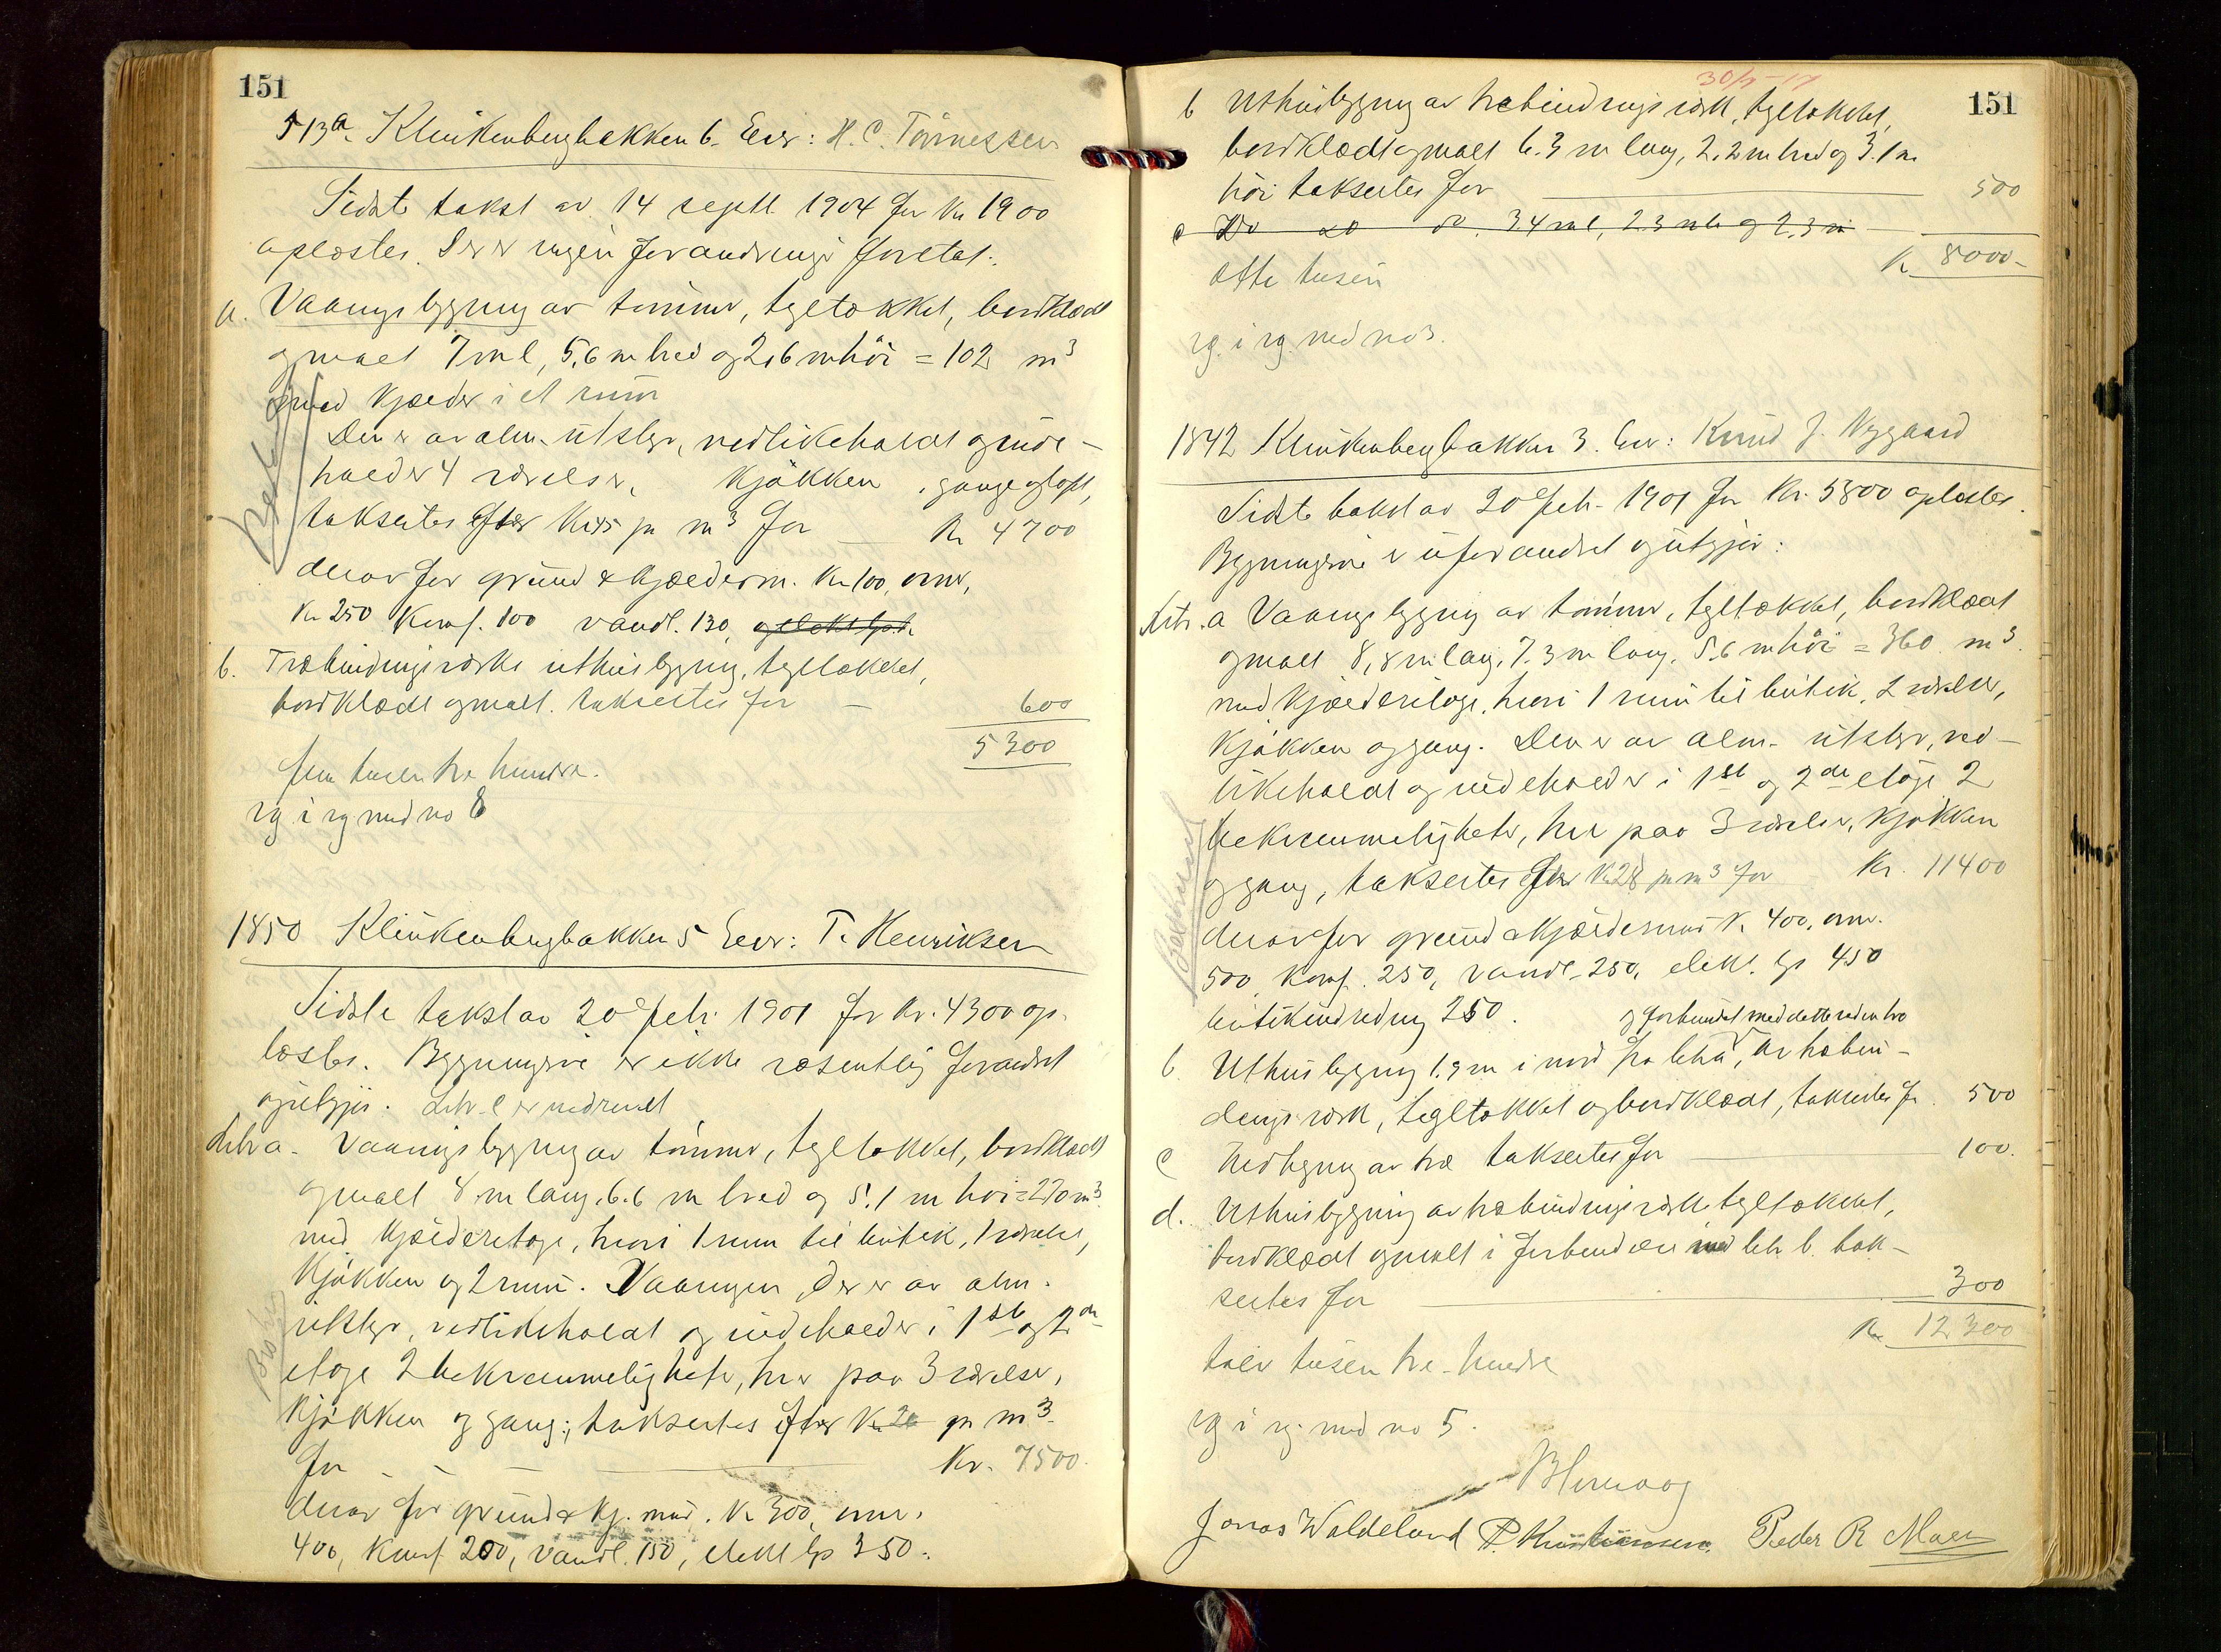 151
513a Klinkenbergbakken 6. Eier: H. C. Tönnessen
Sidste takst av 14 septb. 1904 for kr 1900
oplæstes. Der er ingen forandring foretat.
a. Vaaningsbygning av tømmer, tegltækket, bordklædt
og malt 7 m l, 5,6 m bred og 2,6 m höi = 102 m³
med kjælder i et rum
Den er av alm. utstyr, vedlikeholdt og inde-
holder 4 værelser, kjökken, gange og loft,
takseres efter pr m³ for — Kr 4700
derav for grund & kjælderm. Kr 100, ovner,
Kr 250 Komf. 100 vandl. 130,
b. Træbindingsverks uthusbygning, tegltækket,
bordklædt og malt. takseres for — 600
5300
fem tusen tre hundre.
rg i rg med no 8
1850 Klinkenbergbakken 5 Eier: T. Henriksen
Sidste takst av 20 febr. 1901 for kr. 4300 op-
læstes. Bygningerne er ikke væsentlig forandret
og utgjør. Litr. c er nedrevet
Litr a. Vaaningsbygning av tømmer, tegltækket, bordklædt
og malt 8 m lang, 6.6 m bred og 5.1 m höi = 270 m³
med kjælderetage, hvori 1 rum til butik, 1 værelse,
kjökken og 2 rum. Vaaningen, der er av alm.
utstyr, vedlikeholdt og indeholder i 1ste og 2den
etage 2 bekvemmeligheter, hver paa 3 værelser,
kjökken og gang; takseres efter Kr pr m³
for — Kr. 7500.
derav for grund & kj. mur. Kr 300, ovner,
400, Komf. 200, vandl. 150, elekt lys 350.
30/9-17
151
b Uthusbygning av træbindingsverk, tegltækket,
bordklædt og malt 6.3 m lang, 2.2 m bred og 3.1 m
höi takseres for — 500
c Do do do. 3.4 m l, 2.3 m b og 2.3 m
Kr 8000-
otte tusen
rg. i rg. med no 3.
1842 Klinkenbergbakken 3. Eier: Knud J. Nygaard
Sidste takst av 20 febr. 1901 for Kr. 5800 oplæstes.
Bygningerne er uforandret og utgjør:
Litr. a Vaaningsbygning av tømmer, tegltækket, bordklædt
og malt 8,8 m lang, 7.3 m lang, 5.6 m höi = 360 m³
med kjælderetage, hvori 1 rum til butik, 2 værelser,
kjökken og gang. Den er av alm. utstyr, ved-
likeholdt og indeholder i 1ste og 2den etage 2
bekvemmeligheter, hver paa 3 værelser, kjøkken
og gang, takseres efter Kr 28 pr m³ for Kr. 11400
derav for grund & kjældermur Kr 400, ovner.
500, Komf. 250, vandl. 250, elekt. lys 450
butikindredning 250.
og forbundet med dette ved en bro
b. Uthusbygning 1.9 m i nord fra litr a, av træbin-
dingsverk, tegltækket og bordklædt, takseres for 500
c Vedbygning av træ takseres for — 100.
d. Uthusbygning av træbindingsverk tegltækket,
bordklædt og malt i forbindelse med litr b. tak-
seres for — 300
Kr 12300
tolv tusen tre hundre
rg i rg. med no 5.
Jonas Waldeland P. Kristiansen. Peder R Moen